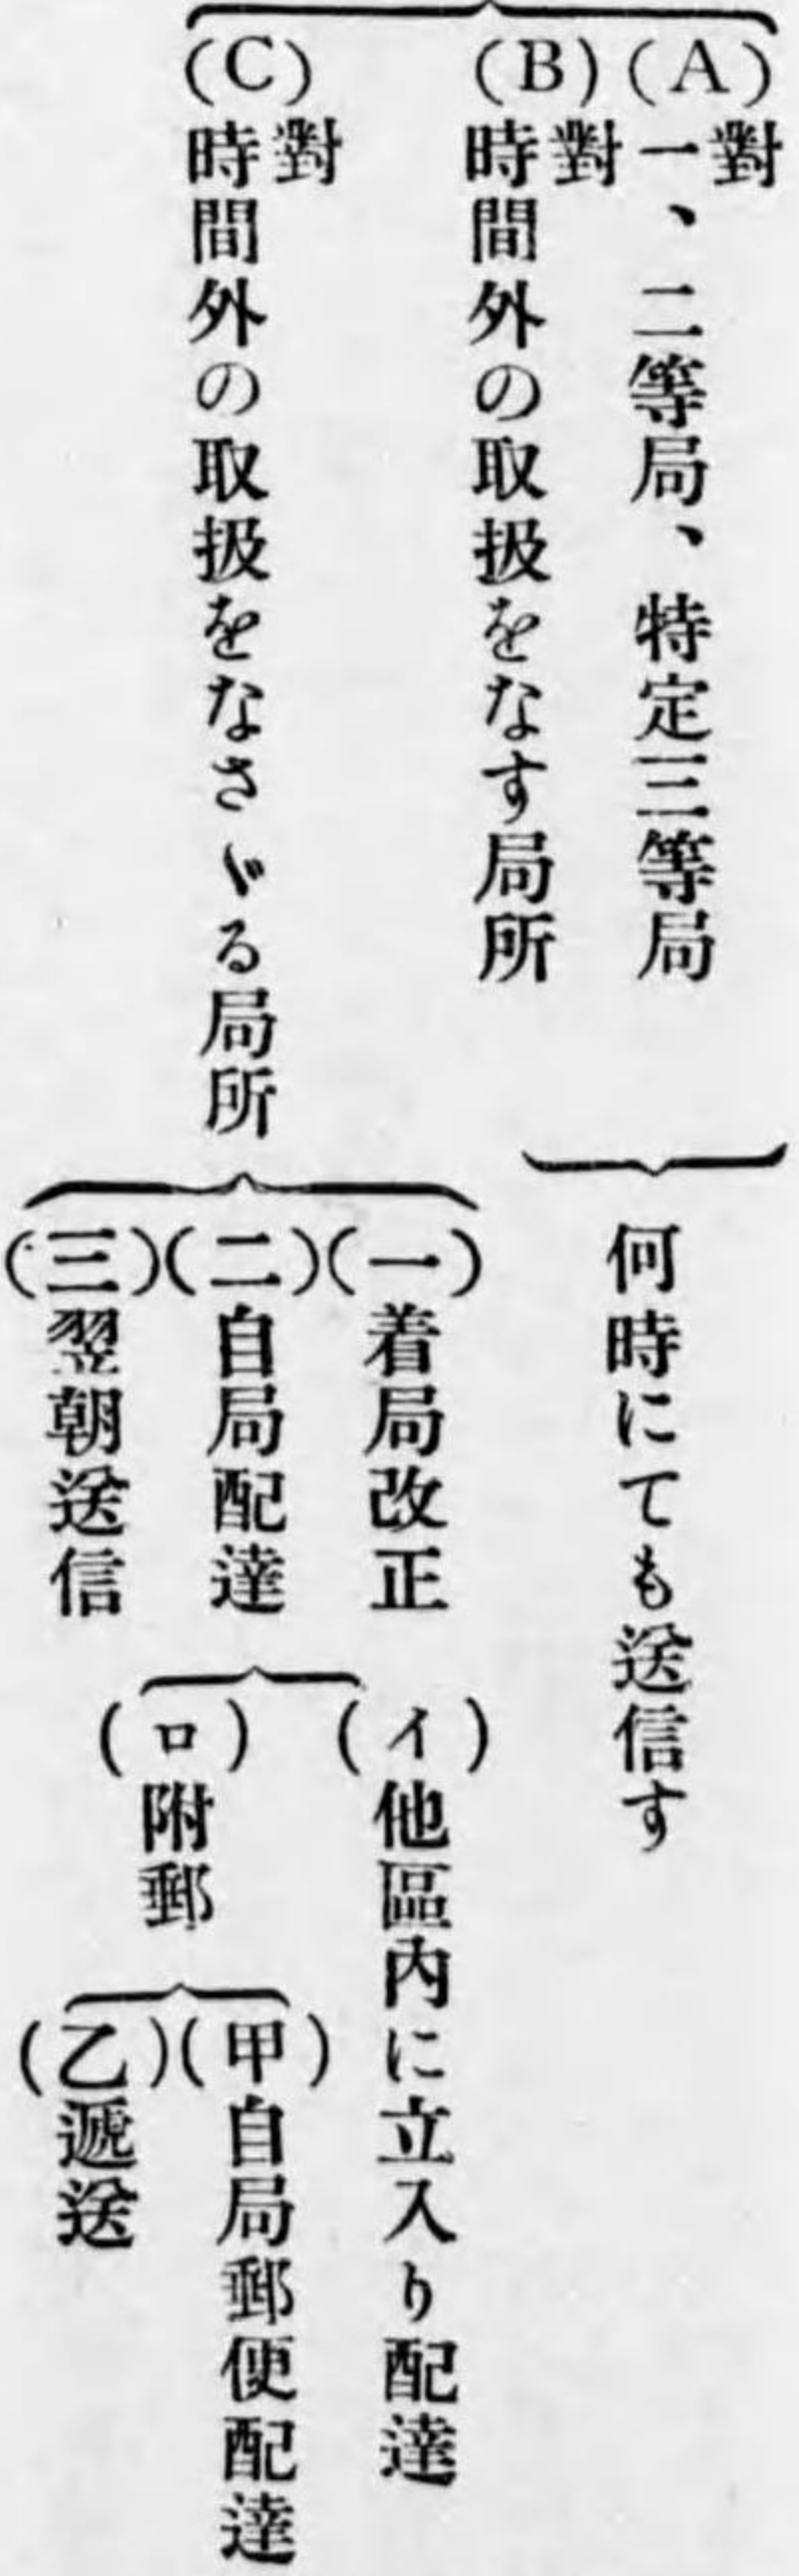 (A)對一、二等局、特定三等局
(B)對時間外の取扱をなす局所
何時にても送信す
(C)對時間外の取扱をなさゞる局所
(一)着局改正
(二)自局配達
(イ)他區内に立入り配達
(ロ)附郵
(甲)自局郵便配達
(乙)遞送
(三)翌朝送信